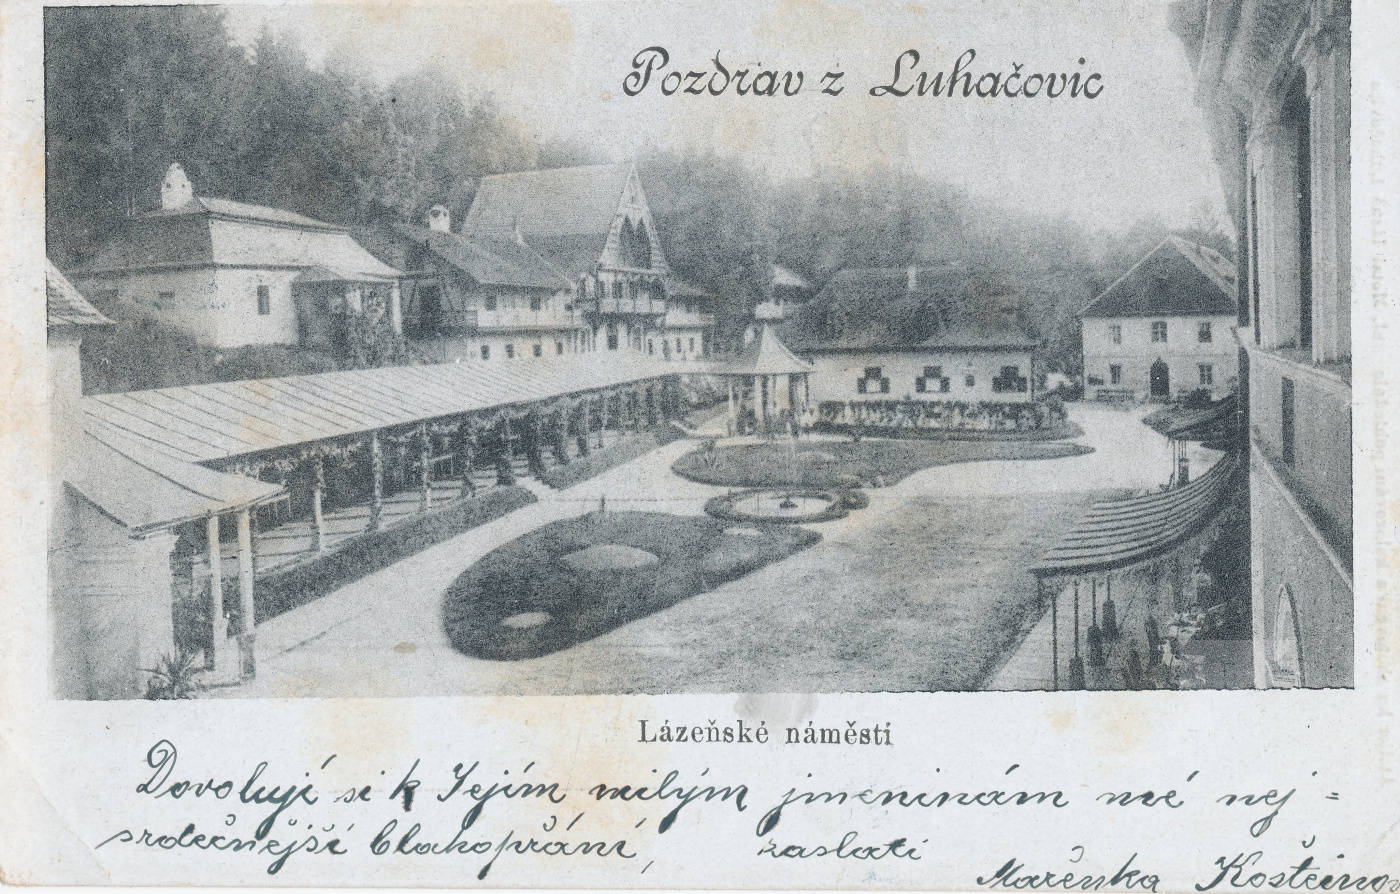 Pozdrav z Luhačovic
Lázeňské náměstí
Dovolují si k Jejím milým jmeninám mé nej=
srdečnější blahopřání, zaslati
Mařenka